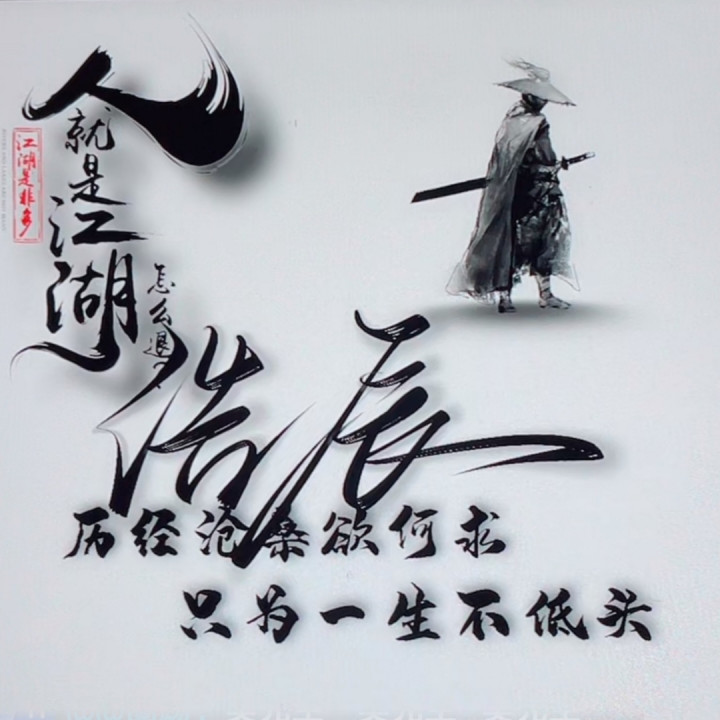 人就是江湖
怎么退
江湖是非多
浩辰
历经沧桑欲何求
只为一生不低头